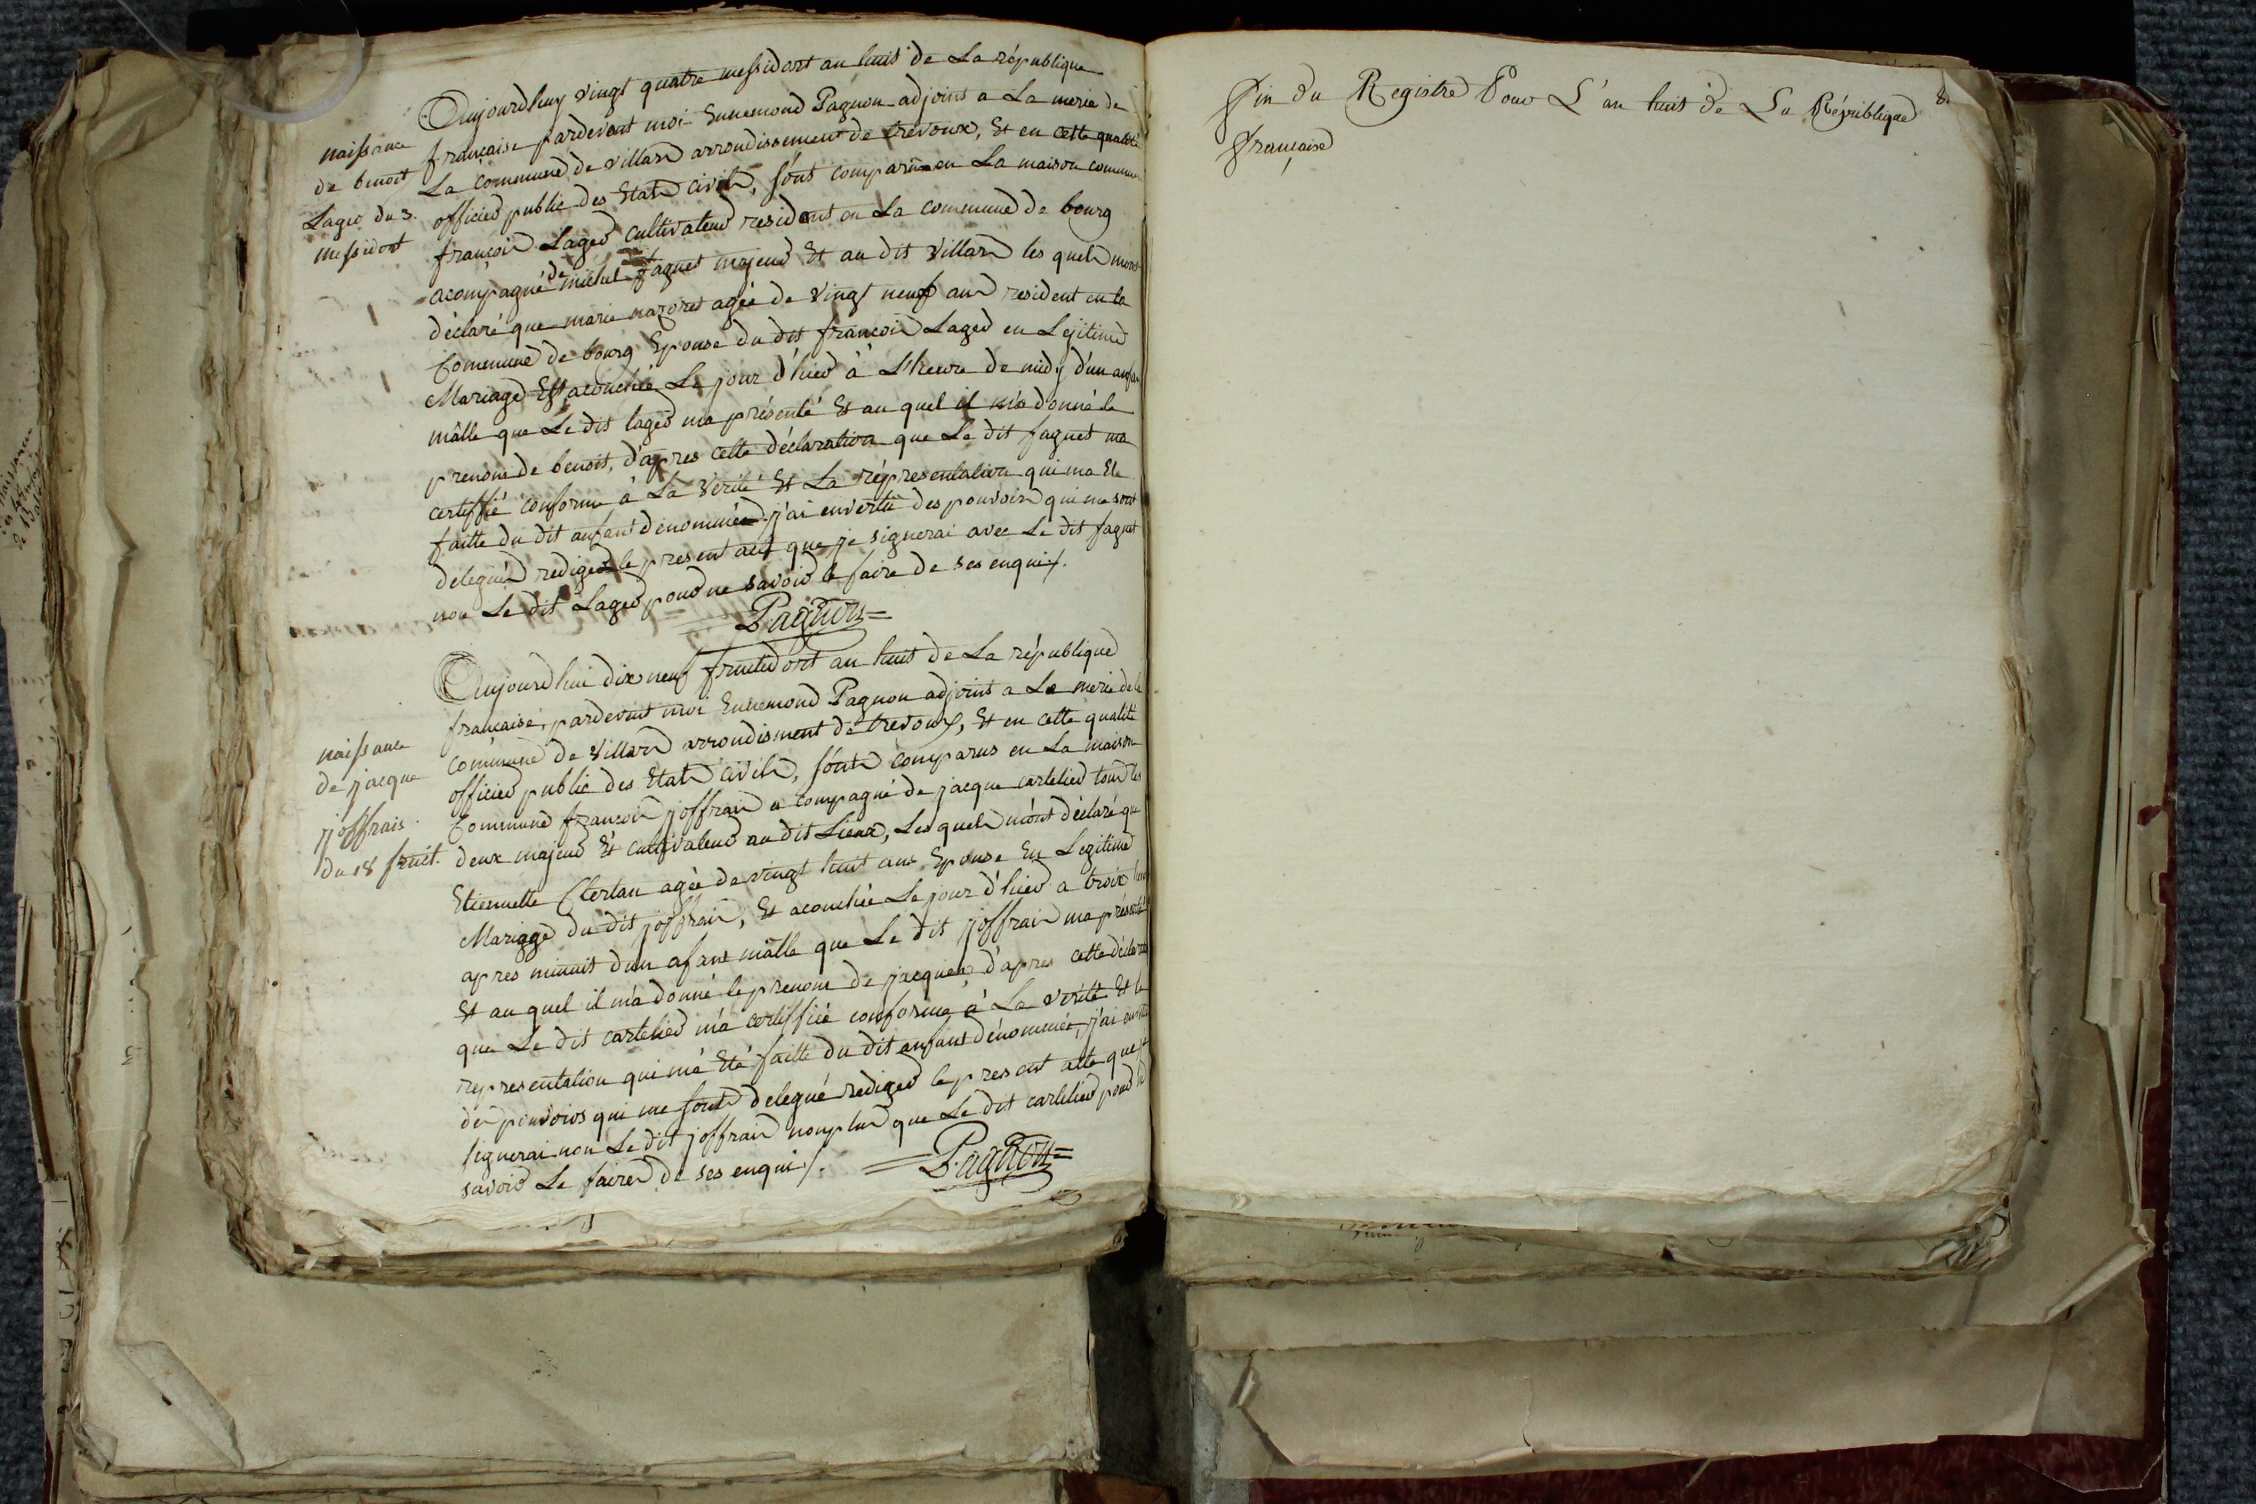 naissance
de benoit
Lager du 3.
messidort
Aujourdhuy vingt quatre messidort an huit de La république
française pardevent moi Ennemond Pagnon adjoint a La merie de
La commune de villars arrondissement de trévoux, Et en cette qualité
officier public des Etats civils, sont comparu en La maison commune
françois Lager cultivateur resident en La commune de bourg
acompagné de michel fagnet majeur Et au dit Villars les quels mont
déclaré que marie nazoret agée de vingt neuf ans resident en la
Commune de bourg Epouse du dit françois Lager en Legitime
Mariage Est acouchée Le jour d'hier à L'heure de midy d'un anfan
mâlle que Le dit lager ma présenté Et au quel il m'a donné le
prenom de benoit, d'apres cette déclaration que Le dit fagnet ma
certiffié conforme à La vérité Et La répresentation qui ma Ete
faitte du dit anfant denommée j'ai envertu des pouvoirs qui me sont
delegués rediger le present acte que je signerai avec Le dit fagnet
non Le dit Lager pour ne savoir le faire de ses enquis.
Pagnon
naissance
de jacque
joffrais.
du 18 fruit.
Aujourdhui dix neuf fruitidort an huit de La république
française, pardevent moi Ennemond Pagnon adjoint a La merie de la
commune de Villars arrondisment de trevoux, Et en cette qualité
officier public des Etats civils, sont comparus en La maison
Commune françois joffrais a compagné de jacque cartelier tous les
deux majeur Et cultivateur au dit Lieux, Les quels m'ont déclaré que
Etiennette Clertan agée de vingt huit ans Epouse En Legitime
Mariage du dit joffrais, Et acouchée Le jour d'hier a trois
apres minuit d'un afant mâlle que Le dit joffrais ma présenté
Et au quel il m'a donné le prenom de jacques d'apres cette
que Le dit cartelier m'a certiffié conforme à La vérité Et la
representation qui m'a Eté faitte du dit anfant dénommée, j'ai
des pouvoirs qui me sont delegué rediger le present acte que je
signerai non Le dit joffrais nonplus que Le dit cartelier pour
savoir Le faire de ses enquis.
Pagnon
Fin du Registre Pour L'an huit de La République
française